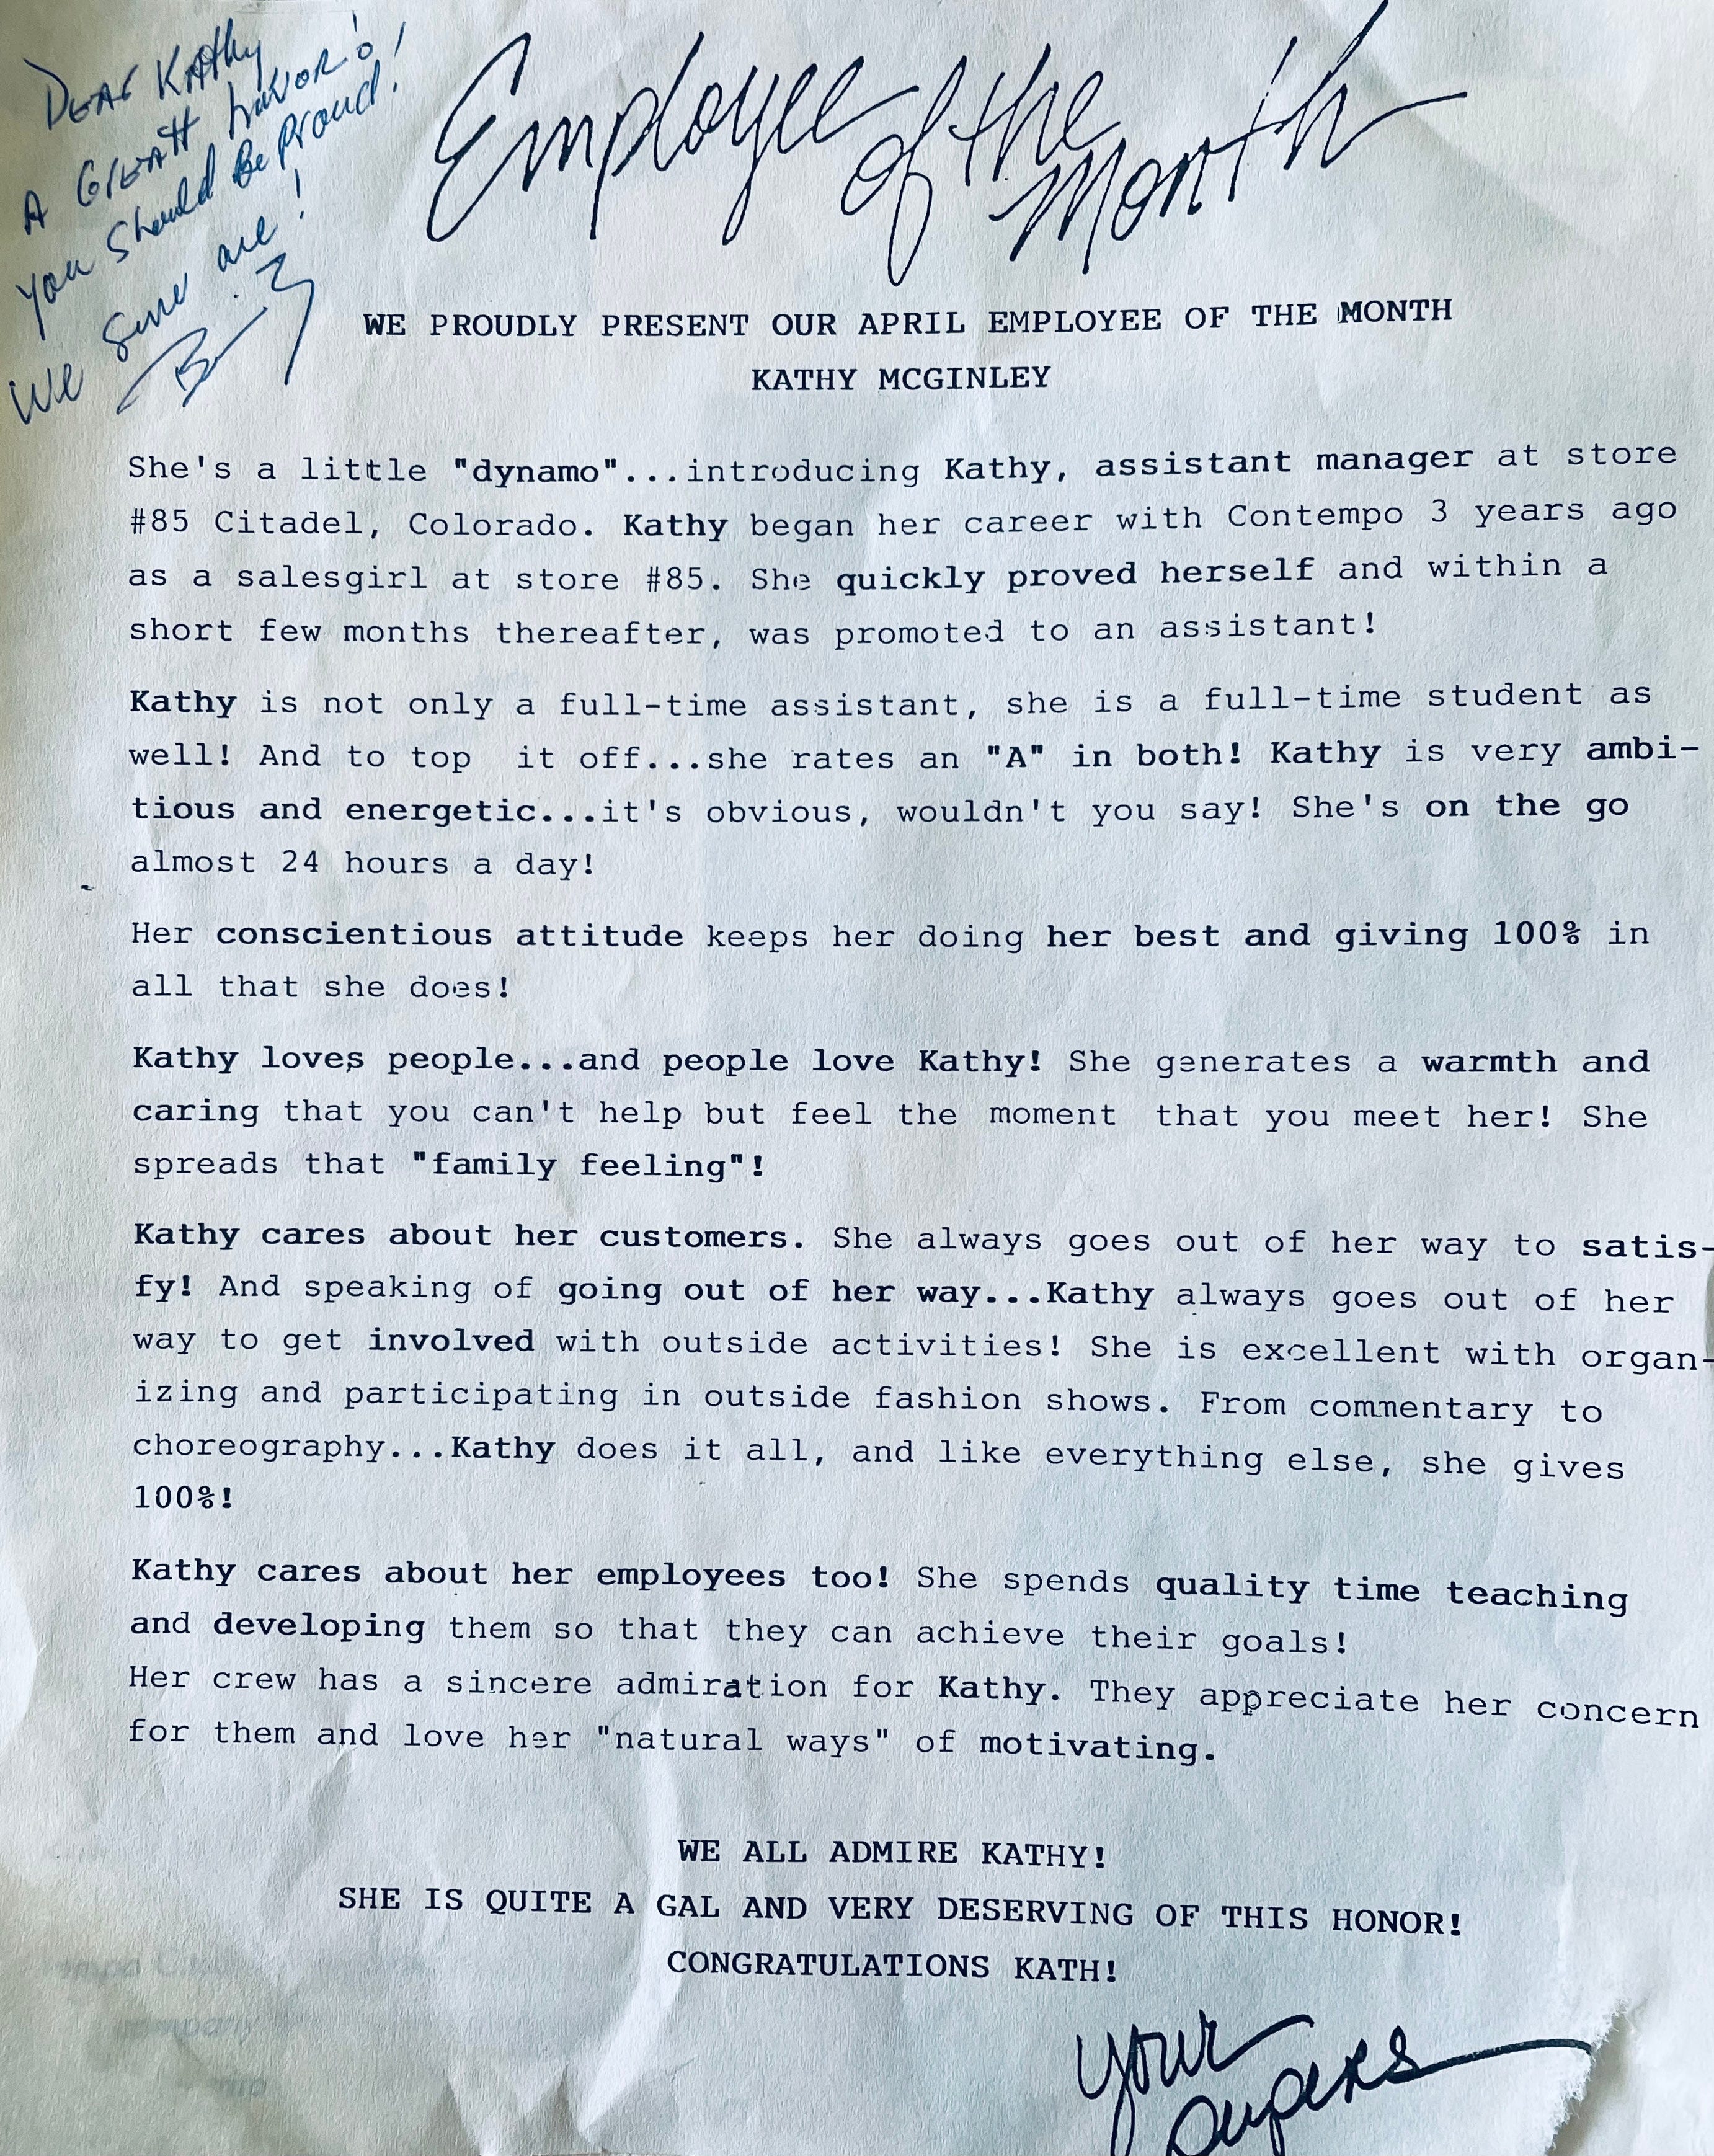 Dear Kathy
A Great honor!
You Should Be Proud!
We Sure are!
Employee
of the
Month
WE PROUDLY PRESENT OUR APRIL EMPLOYEE OF THE MONTH
KATHY MCGINLEY
She's a little "dynamo"...introducing Kathy, assistant manager at store
#85 Citadel, Colorado. Kathy began her career with Contempo 3 years ago
as a salesgirl at store #85. She quickly proved herself and within a
short few months thereafter, was promoted to an assistant!
Kathy is not only a full-time assistant, she is a full-time student as
well! And to top it off...she rates an "A" in both! Kathy is very ambi-
tious and energetic...it's obvious, wouldn't you say! She's on the go
almost 24 hours a day!
Her conscientious attitude keeps her doing her best and giving 100% in
all that she does!
Kathy loves people...and people love Kathy! She generates a warmth and
caring that you can't help but feel the moment that you meet her! She
spreads that "family feeling"!
Kathy cares about her customers. She always goes out of her way to satis-
fy! And speaking of going out of her way...Kathy always goes out of her
way to get involved with outside activities! She is excellent with organ-
izing and participating in outside fashion shows. From commentary to
choreography...Kathy does it all, and like everything else, she gives
100%!
Kathy cares about her employees too! She spends quality time teaching
and developing them so that they can achieve their goals!
Her crew has a sincere admiration for Kathy. They appreciate her concern
for them and love her "natural ways" of motivating.
WE ALL ADMIRE KATHY!
SHE IS QUITE A GAL AND VERY DESERVING OF THIS HONOR!
CONGRATULATIONS KATH!
Your
Supers